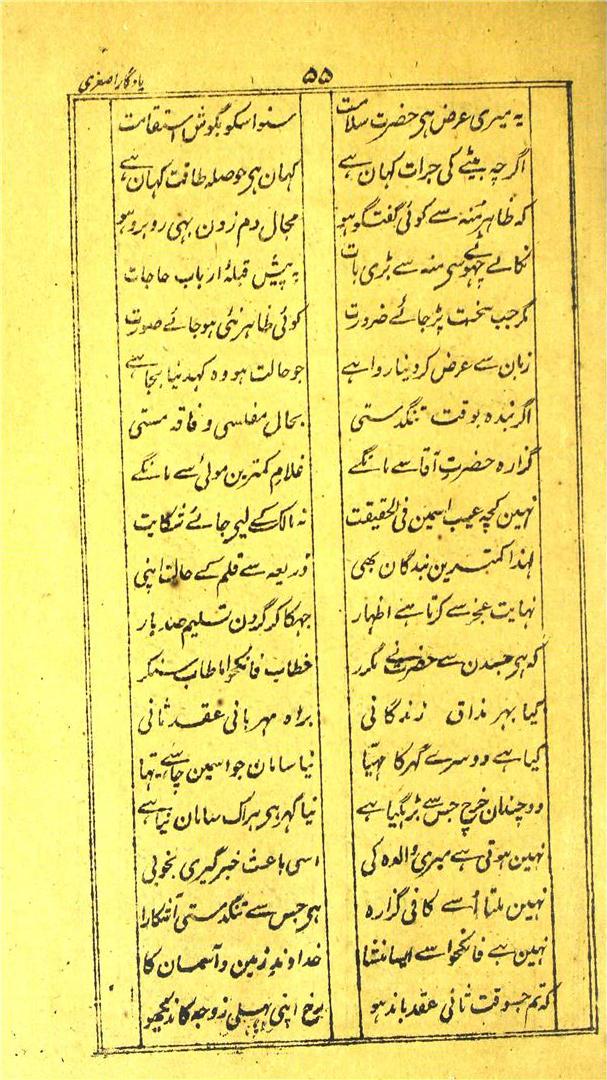 یادگار اصغری
۵۵
یہ میری عرض ہی حضرت سلامت سنو اسکو بگوش استقامت
اگرچہ بیٹے کی جرات کہاں ہے کہان ہی حوصلہ طاقت کہان ہے
کہ ظاہر منہ سے کوئی گفتگو ہو مجال دم زدن بہی روبرو ہو
نکالے چہوٹے سی منہ سے بڑی بات بہ پیش قبلۂ ارباب حاجات
مگر جب سخت پڑ جائے ضرورت کوئی ظاہر نئی ہو جائے صورت
زبان سے عرض کردینا روا ہے جو حالت ہو وہ کہدینا بجا ہے
اگر بندہ بوقت تنگدستی بحال مفلسی و فاقہ مستی
گزارہ حضرتِ آقا سے مانگے غلامِ کمترین مولیٰ سے مانگے
نہین کچہ عیب اسمین فی الحقیقت نہ مالک کے لیے جائے شکایت
لہذا کمترین بندگان بھی ذریعہ سے قلم کے حالت اپنی
نہایت عجز سے کرتا ہے اظہار جہکا کر گردن تسلیم صد بار
کہ ہی جسدن سے حضرت نے مکرر خطاب فانکحوا ماطاب سنکر
کیا بہر مذاق زندگانی براہ مہربانی عقد ثانی
کیا ہے دوسرے گہر کا مہیّا نیا سامان جو اسمین چاہیے تہا
دو چندان خرچ جس سے بڑہ گیا ہے نیا گہر ہی ہر اک سامان نیا ہے
نہین ہوتی ہے میری والدہ کی اسی باعث خبرگیری بخوبی
نہین ملتا اُسے کافی گزارہ ہی جس سے تنگدستی آشکارا
نہین ہے فانکحوا سے ایسا منشا خداوند زمین و آسمان کا
کہ تم جسوقت ثانی عقد باندہو برخ اپنی پہلی زوجہ کا نہ دیکھو